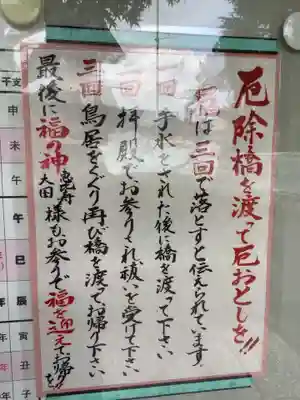 厄除橋を渡って厄おとしを!!
厄は三回で落とすと伝えられています。
一回 手水をされた後に橋を渡って下さい
二回 拝殿でお参りされ祓いを受けて下さい
三回 鳥居をくぐり再び橋を渡ってお帰り下さい
最後に福の神 恵比寿 大国 様もお参りで福を迎えお帰りを!!
干支
申
未
午
午
巳
辰
寅
丑
子